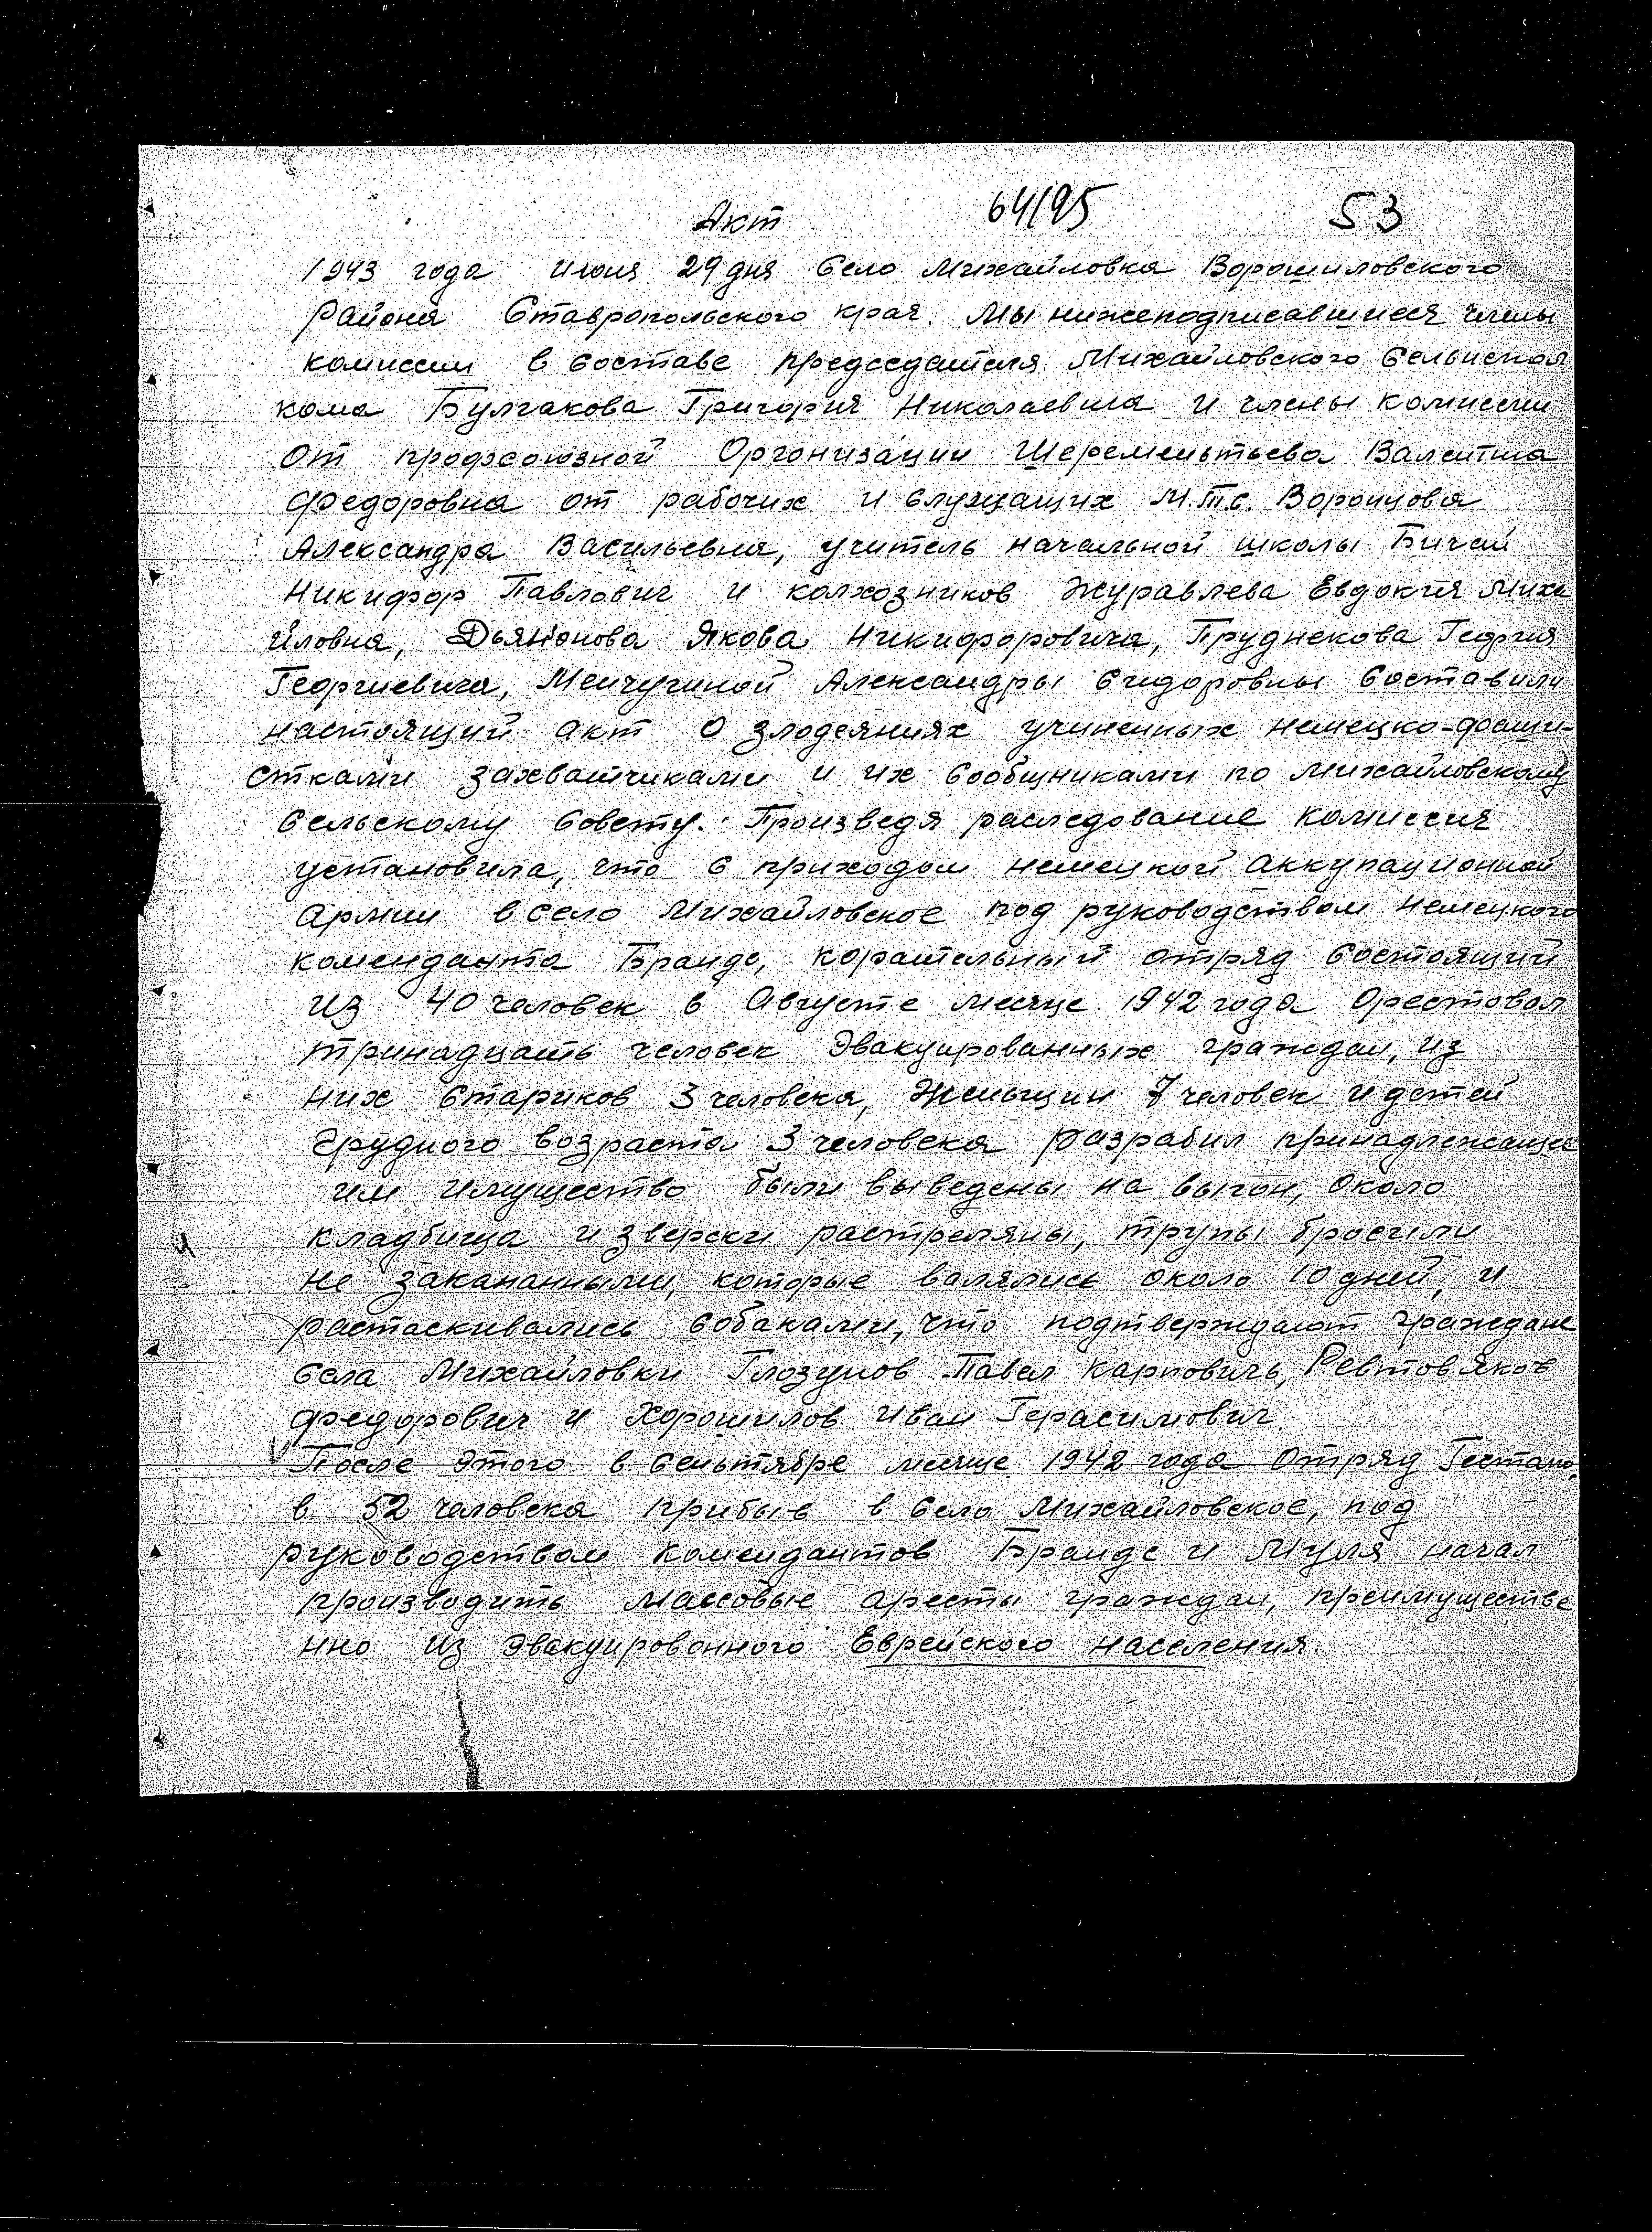 Акт 64/95 53
1943 года июня 29 дня Село Михайловка Ворошиловского
Района Ставропольского края. Мы нижеподписавшиеся члены
комиссии в составе председателя Михайловского Сельиспол
кома Булгакова Григория Николаевича и члены комиссии
От профсоюзной Организации Шереметьева Валентина
Федоровна от рабочих и служащих М.Т.С. Воронцова
Александра Васильевна, учитель начальной школы Бичай
Никифор Павлович и колхозников Журавлева Евдокия Миха
йловна, Дьяконова Якова Никифоровича, Пруднекова Георгия
Георгиевича, Менчугиной Александры Сидоровны Составили
настоящий акт О злодеяниях учиненных немецко-фаши-
стками захватчиками и их Сообщниками по Михайловскому
Сельскому Совету. Произведя раследование комиссия
установила, что с приходом немецкой аккупационной
армии в село Михайловское под руководством немецкого
коменданта Бранде, карательный отряд Состоящий
из 40 человек в Августе месяце 1942 года Орестовал
тринадцать человек Эвакуированных граждан, из
них Стариков 3 человека, Женьщин 7 человек и детей
Грудного возраста 3 человека разрабил принадлежащее
им имущество были выведены на выгон, Около
кладбища и зверски растреляны, трупы бросили
не закапанными, которые валялись около 10 дней, и
растаскивались собаками, что подтверждают граждане
Села Михайловки Глозунов Павел Карповичь, Ревтов Яков
Федорович и Хорошилов Иван Герасимович
После этого в Сеньтябре месяце 1942 года Отряд Гестапо,
в 52 человека прибыв в село Михайловское, под
руководством комендантов Бранде и Муля начал
производить массовые аресты граждан, преимуществе
нно из Эвакуированного Еврейского населения.